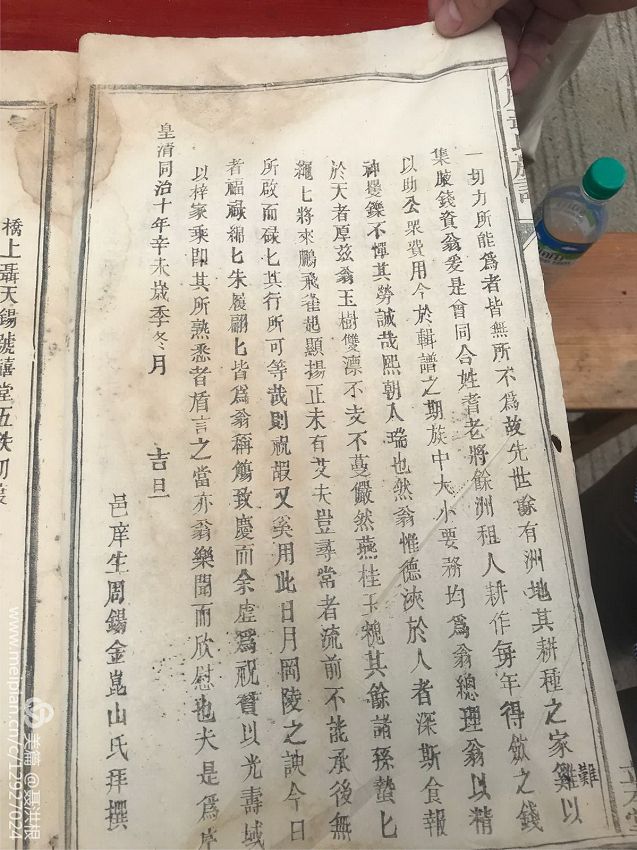 一切力所能為者皆無所不為故先世餘有洲地其耕種之家難以
難
集腋錢資翁爰是曾同合姓耆老將餘洲租人耕作每年得斂之錢
以助公眾費用今於輯譜之期族中大小要務均為翁總理翁以精
神矍鑠不憚其勞誠哉熙朝人瑞也然翁惟德浹於人者深斯食報
於天者厚茲翁玉樹雙漂不支不蔓儼然燕桂王槐其餘諸孫蟄匕
繩匕將來鵬飛雀起顯揚正未有艾夫豈尋常者流前不能承後無
所啟而碌匕其行所可等哉則祝嘏又奚用此日月岡陵之諛今日
者福祿綿匕朱履翩匕皆為翁稱觴致慶而余虛為祝贊以光壽域
以梓家乘即其所熟悉者盾言之當亦翁樂聞而欣慰也夫是為序
皇清同治十年辛未歲季冬月 吉旦
邑庠生周錫金崑山氏拜撰
橋上聶天錫號禧堂五秩初
www.meipian.cn/c/12927024
美篇 @聂洪根